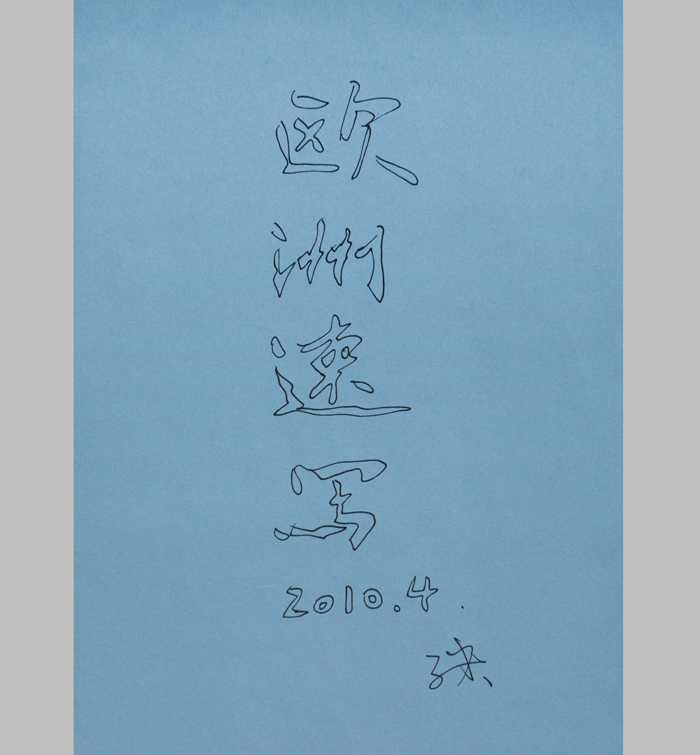 欧洲速写
2010.4.